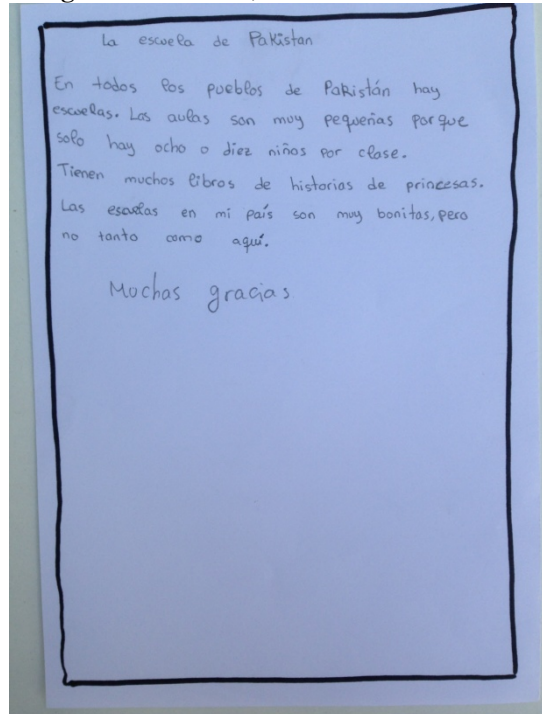 La escuela de Pakistan
En todos los pueblos de Pakistán hay
escuelas. Las aulas son muy pequeñas porque
solo hay ocho o diez niños por clase.
Tienen muchos libros de historias de princesas.
Las escuelas en mi país son muy bonitas, pero
no tanto como aquí.
Muchas gracias